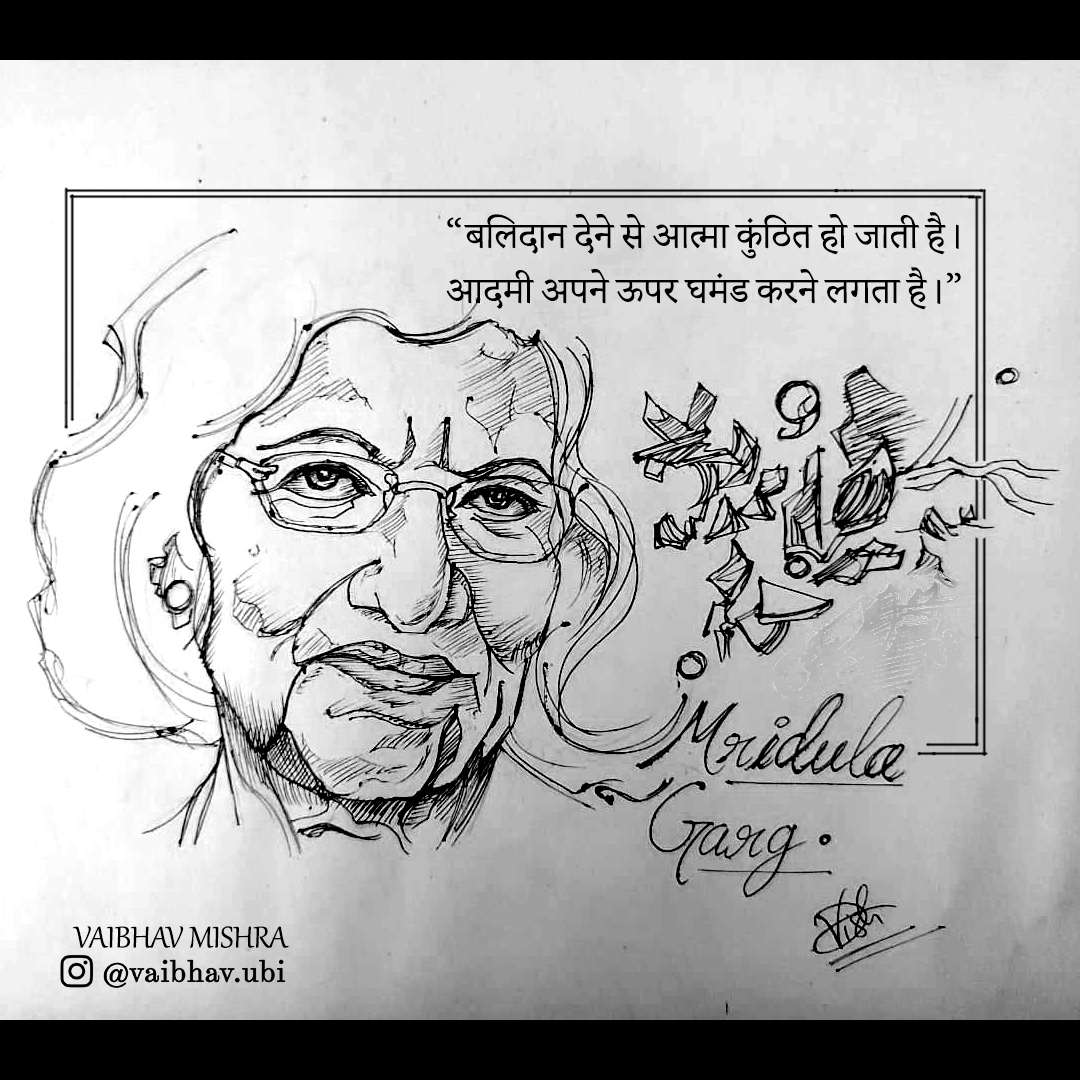 “बलिदान देने से आत्मा कुंठित हो जाती है।
आदमी अपने ऊपर घमंड करने लगता है।”
Mridula
Garg.
VAIBHAV MISHRA
@vaibhav.ubi